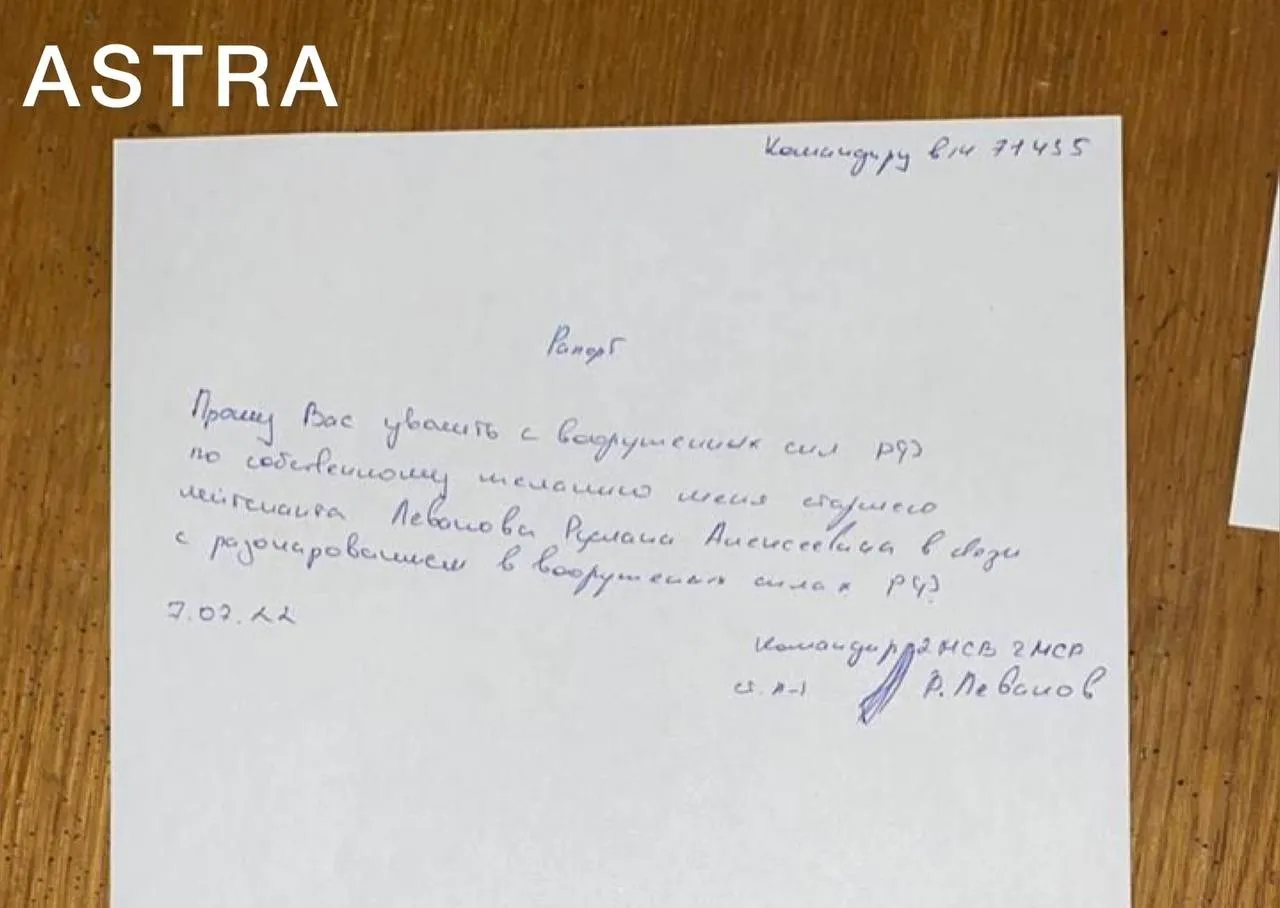 ASTRA
Командиру в/ч 71435
Рапорт
Прошу Вас уволить с вооруженных сил РФ
по собственному желанию меня старшего
лейтенанта Леванова Руслана Алексеевича в связи
с разочарованием в вооруженных силах РФ.
7.07.22
Командир 2 МСВ 2 МСР
ст. л-т Р. Леванов